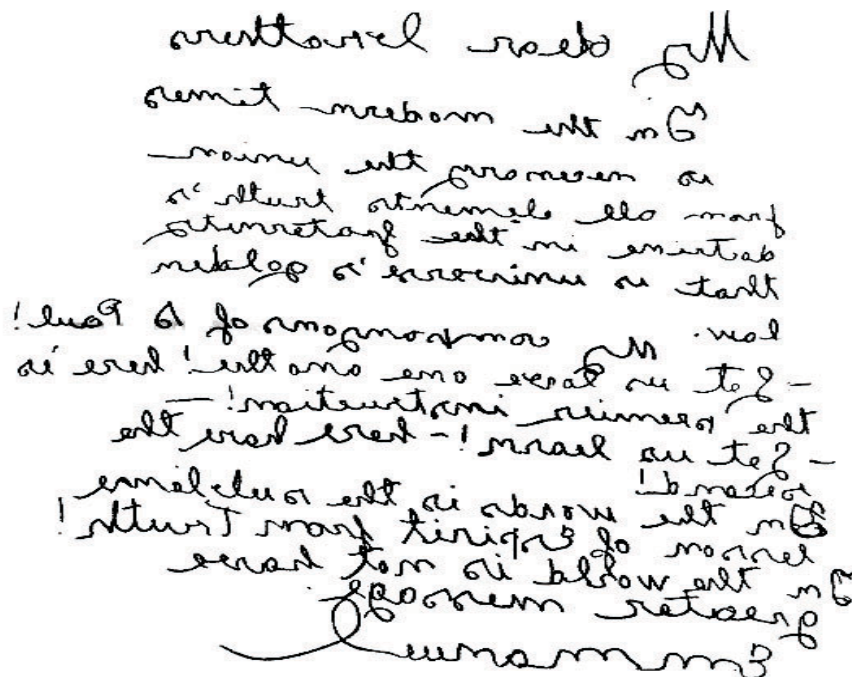 My dear brothers
In the modern times
is necessary the union
from all elements truth's
doctrine in the fraternity
that is universe's golden
law. My of S Paul!
– Let us love one another! here is
the instruction! —
– Let us learn! – here have the
second!
In the words is the sublime
lesson of Espirit from Truth!
In the world is not have
greater message.
Emmanuel